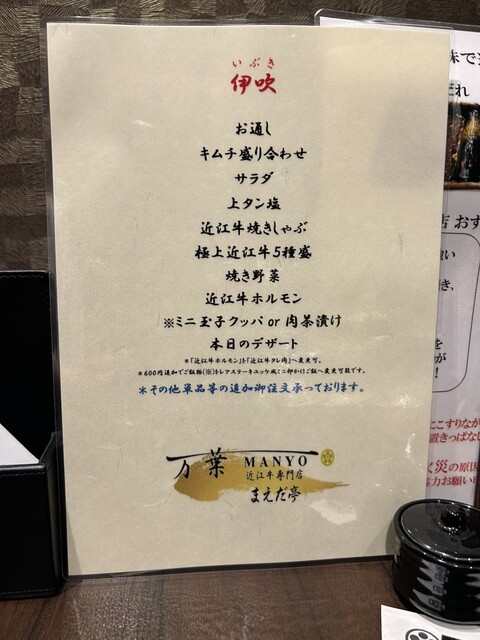 いぶき
伊吹
お通し
キムチ盛り合わせ
サラダ
上タン塩
近江牛焼きしゃぶ
極上近江牛5種盛
焼き野菜
近江牛ホルモン
※ミニ玉子クッパ or 肉茶漬け
本日のデザート
*「近江牛ホルモン」を「近江牛タレ肉」へ変更可。
*600円追加でご飯物(※)をレアステーキユッケ風ミニ卵かけご飯へ変更可能です。
*その他単品等の追加御注文承っております。
万葉 MANYO
近江牛専門店
まえだ亭
味で
だれ
店 おす
き、
を
が
!
にこすりなが
置きっぱなし
く災の原因
力お願い